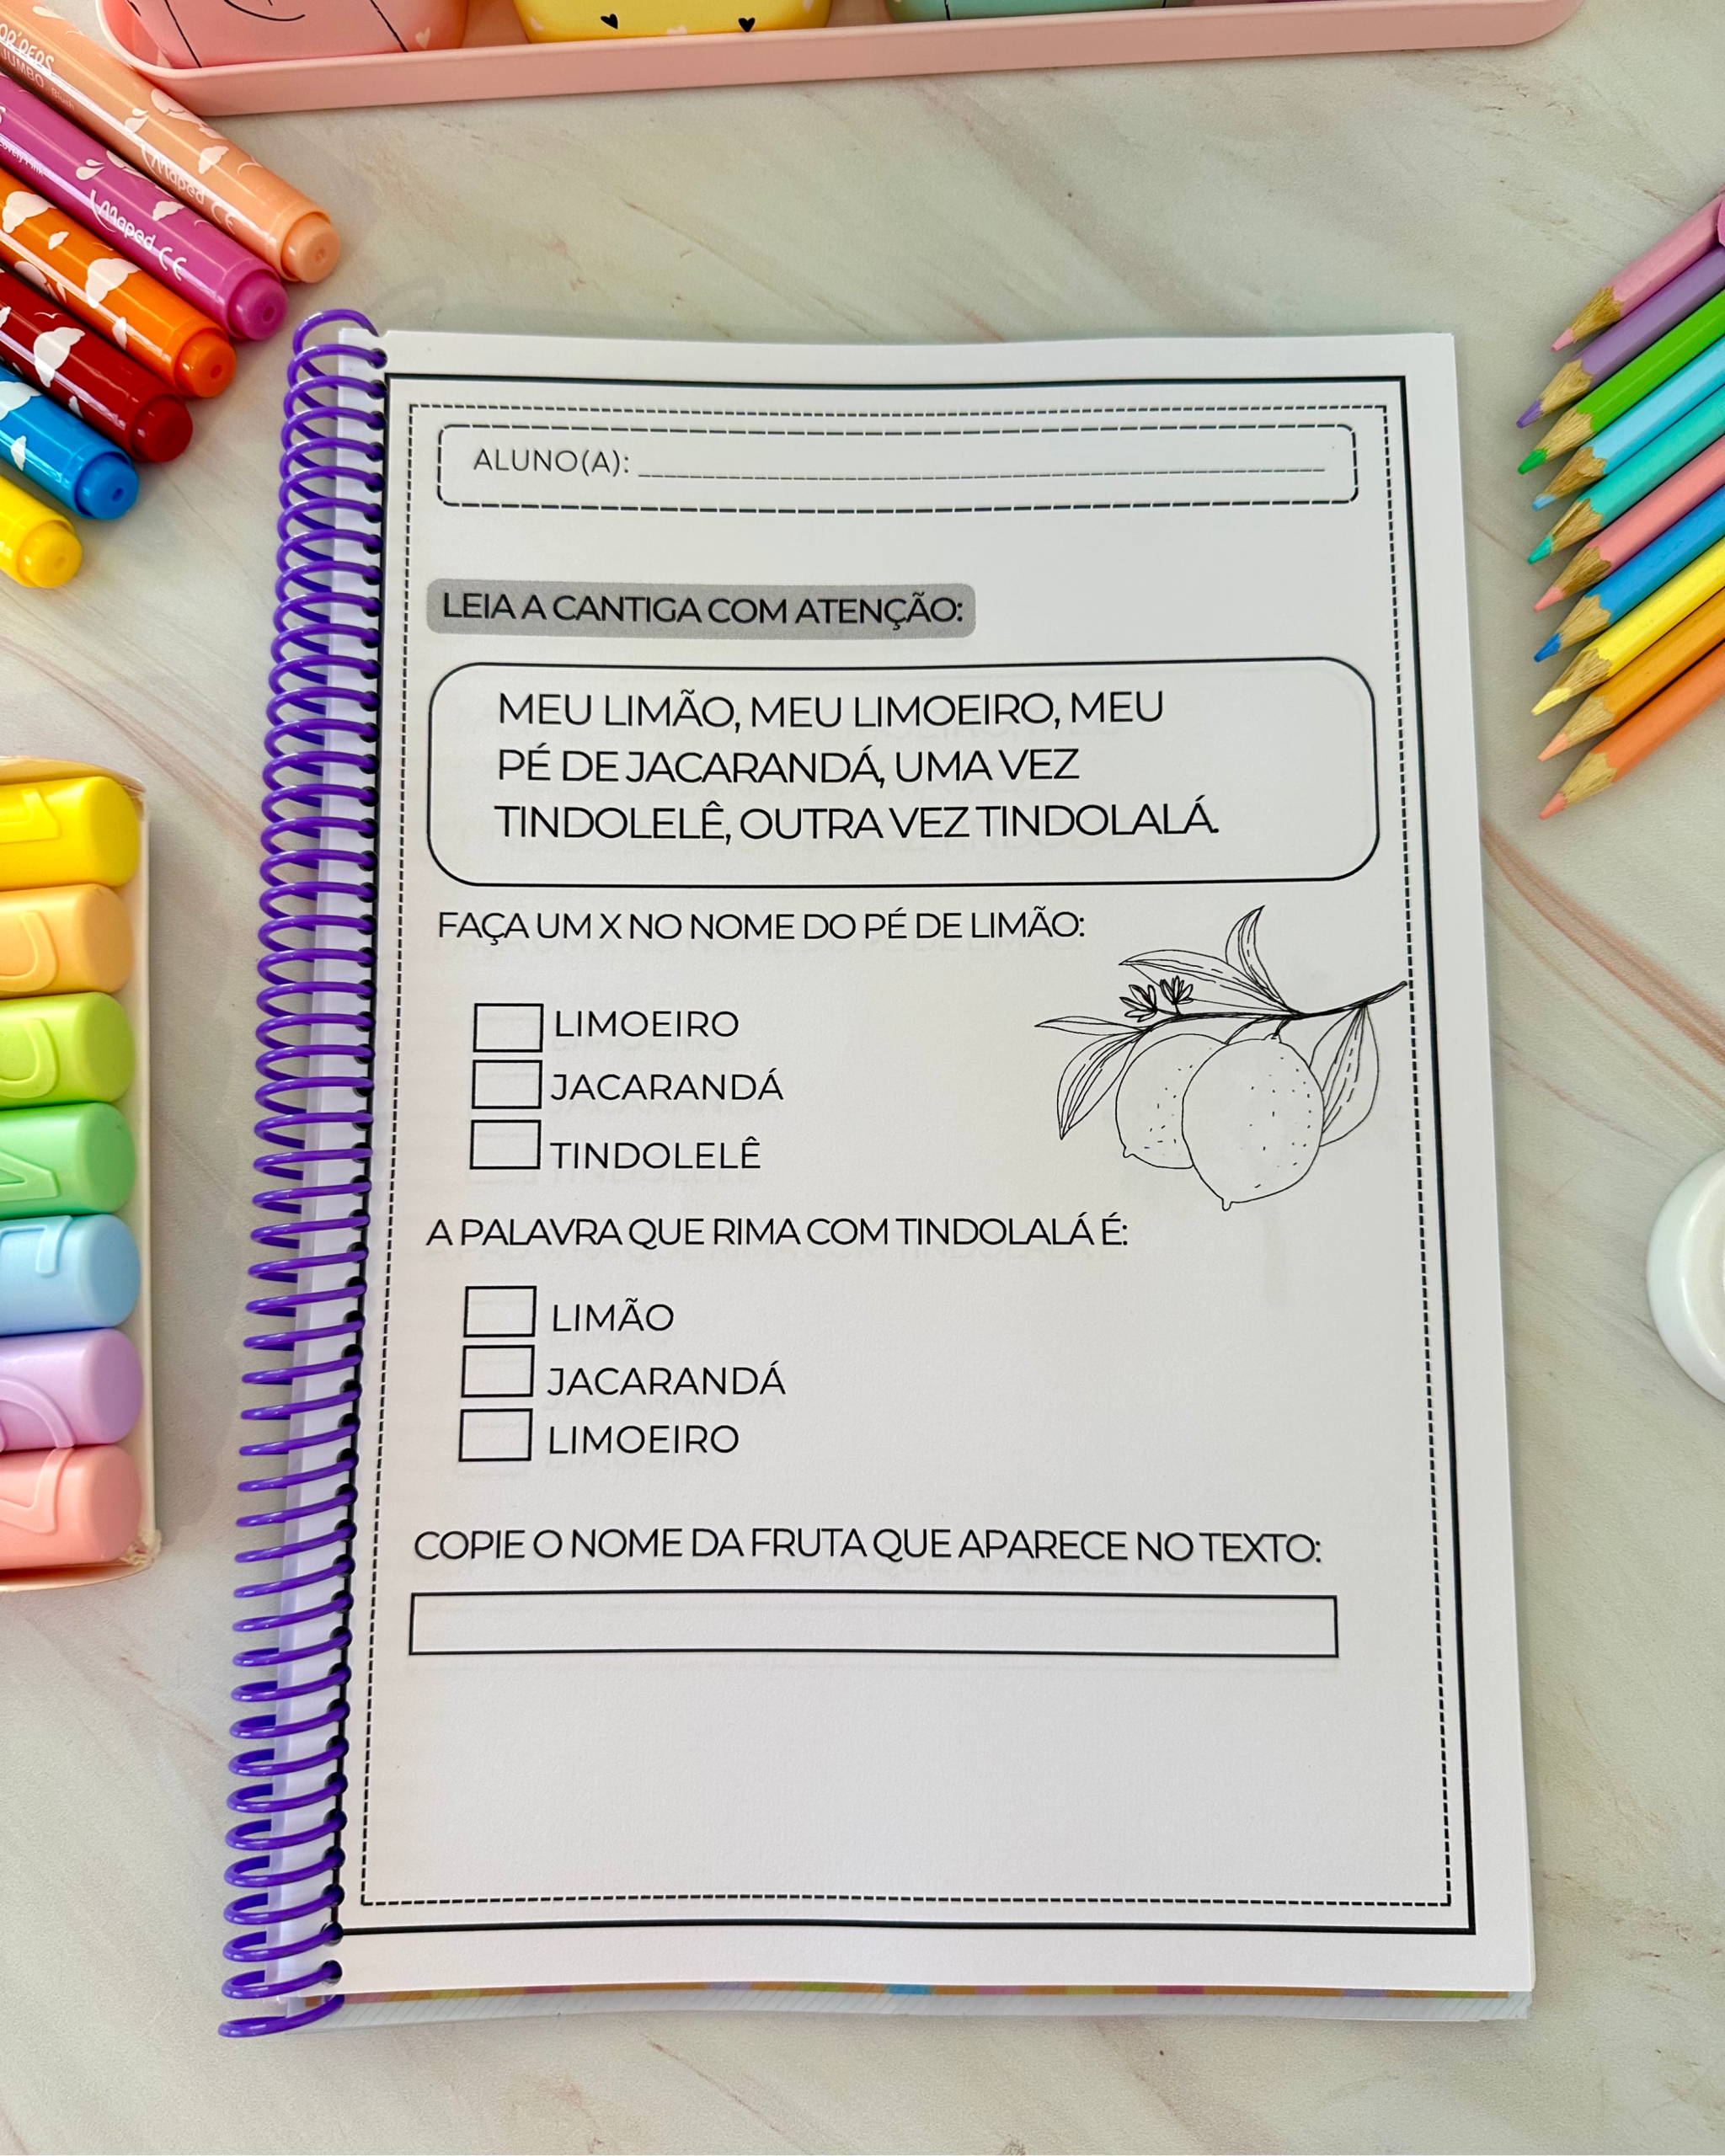 Maped CE
Maped CE
ALUNO(A):
LEIA A CANTIGA COM ATENÇÃO:
MEU LIMÃO, MEU LIMOEIRO, MEU
PÉ DE JACARANDÁ, UMA VEZ
TINDOLELÊ, OUTRA VEZ TINDOLALÁ.
FAÇA UM X NO NOME DO PÉ DE LIMÃO:
LIMOEIRO
JACARANDÁ
TINDOLELÊ
A PALAVRA QUE RIMA COM TINDOLALÁ É:
LIMÃO
JACARANDÁ
LIMOEIRO
COPIE O NOME DA FRUTA QUE APARECE NO TEXTO: